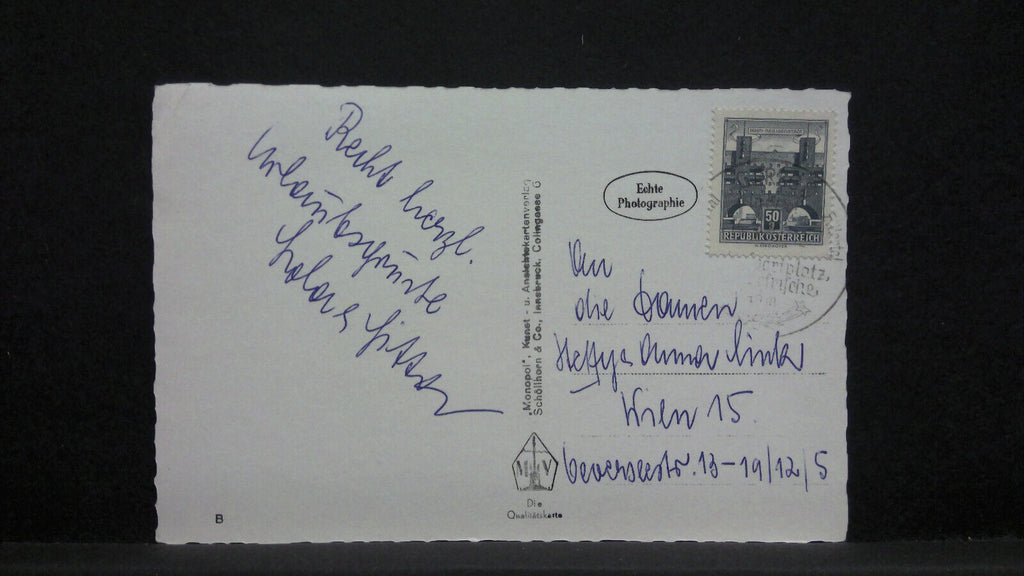 Recht herzl.
Urlaubsgrüsse
"Monopol", Kunst - u. Ansichtskartenverlag
Schöllhorn & Co., Innsbruck, Colingasse 6
Echte
Photographie
50
g
REPUBLIK ÖSTERREICH
An
die Damen
Hettya Anna Link
Wien 15.
13-19/12/5
M V
Die
Qualitätskarte
B